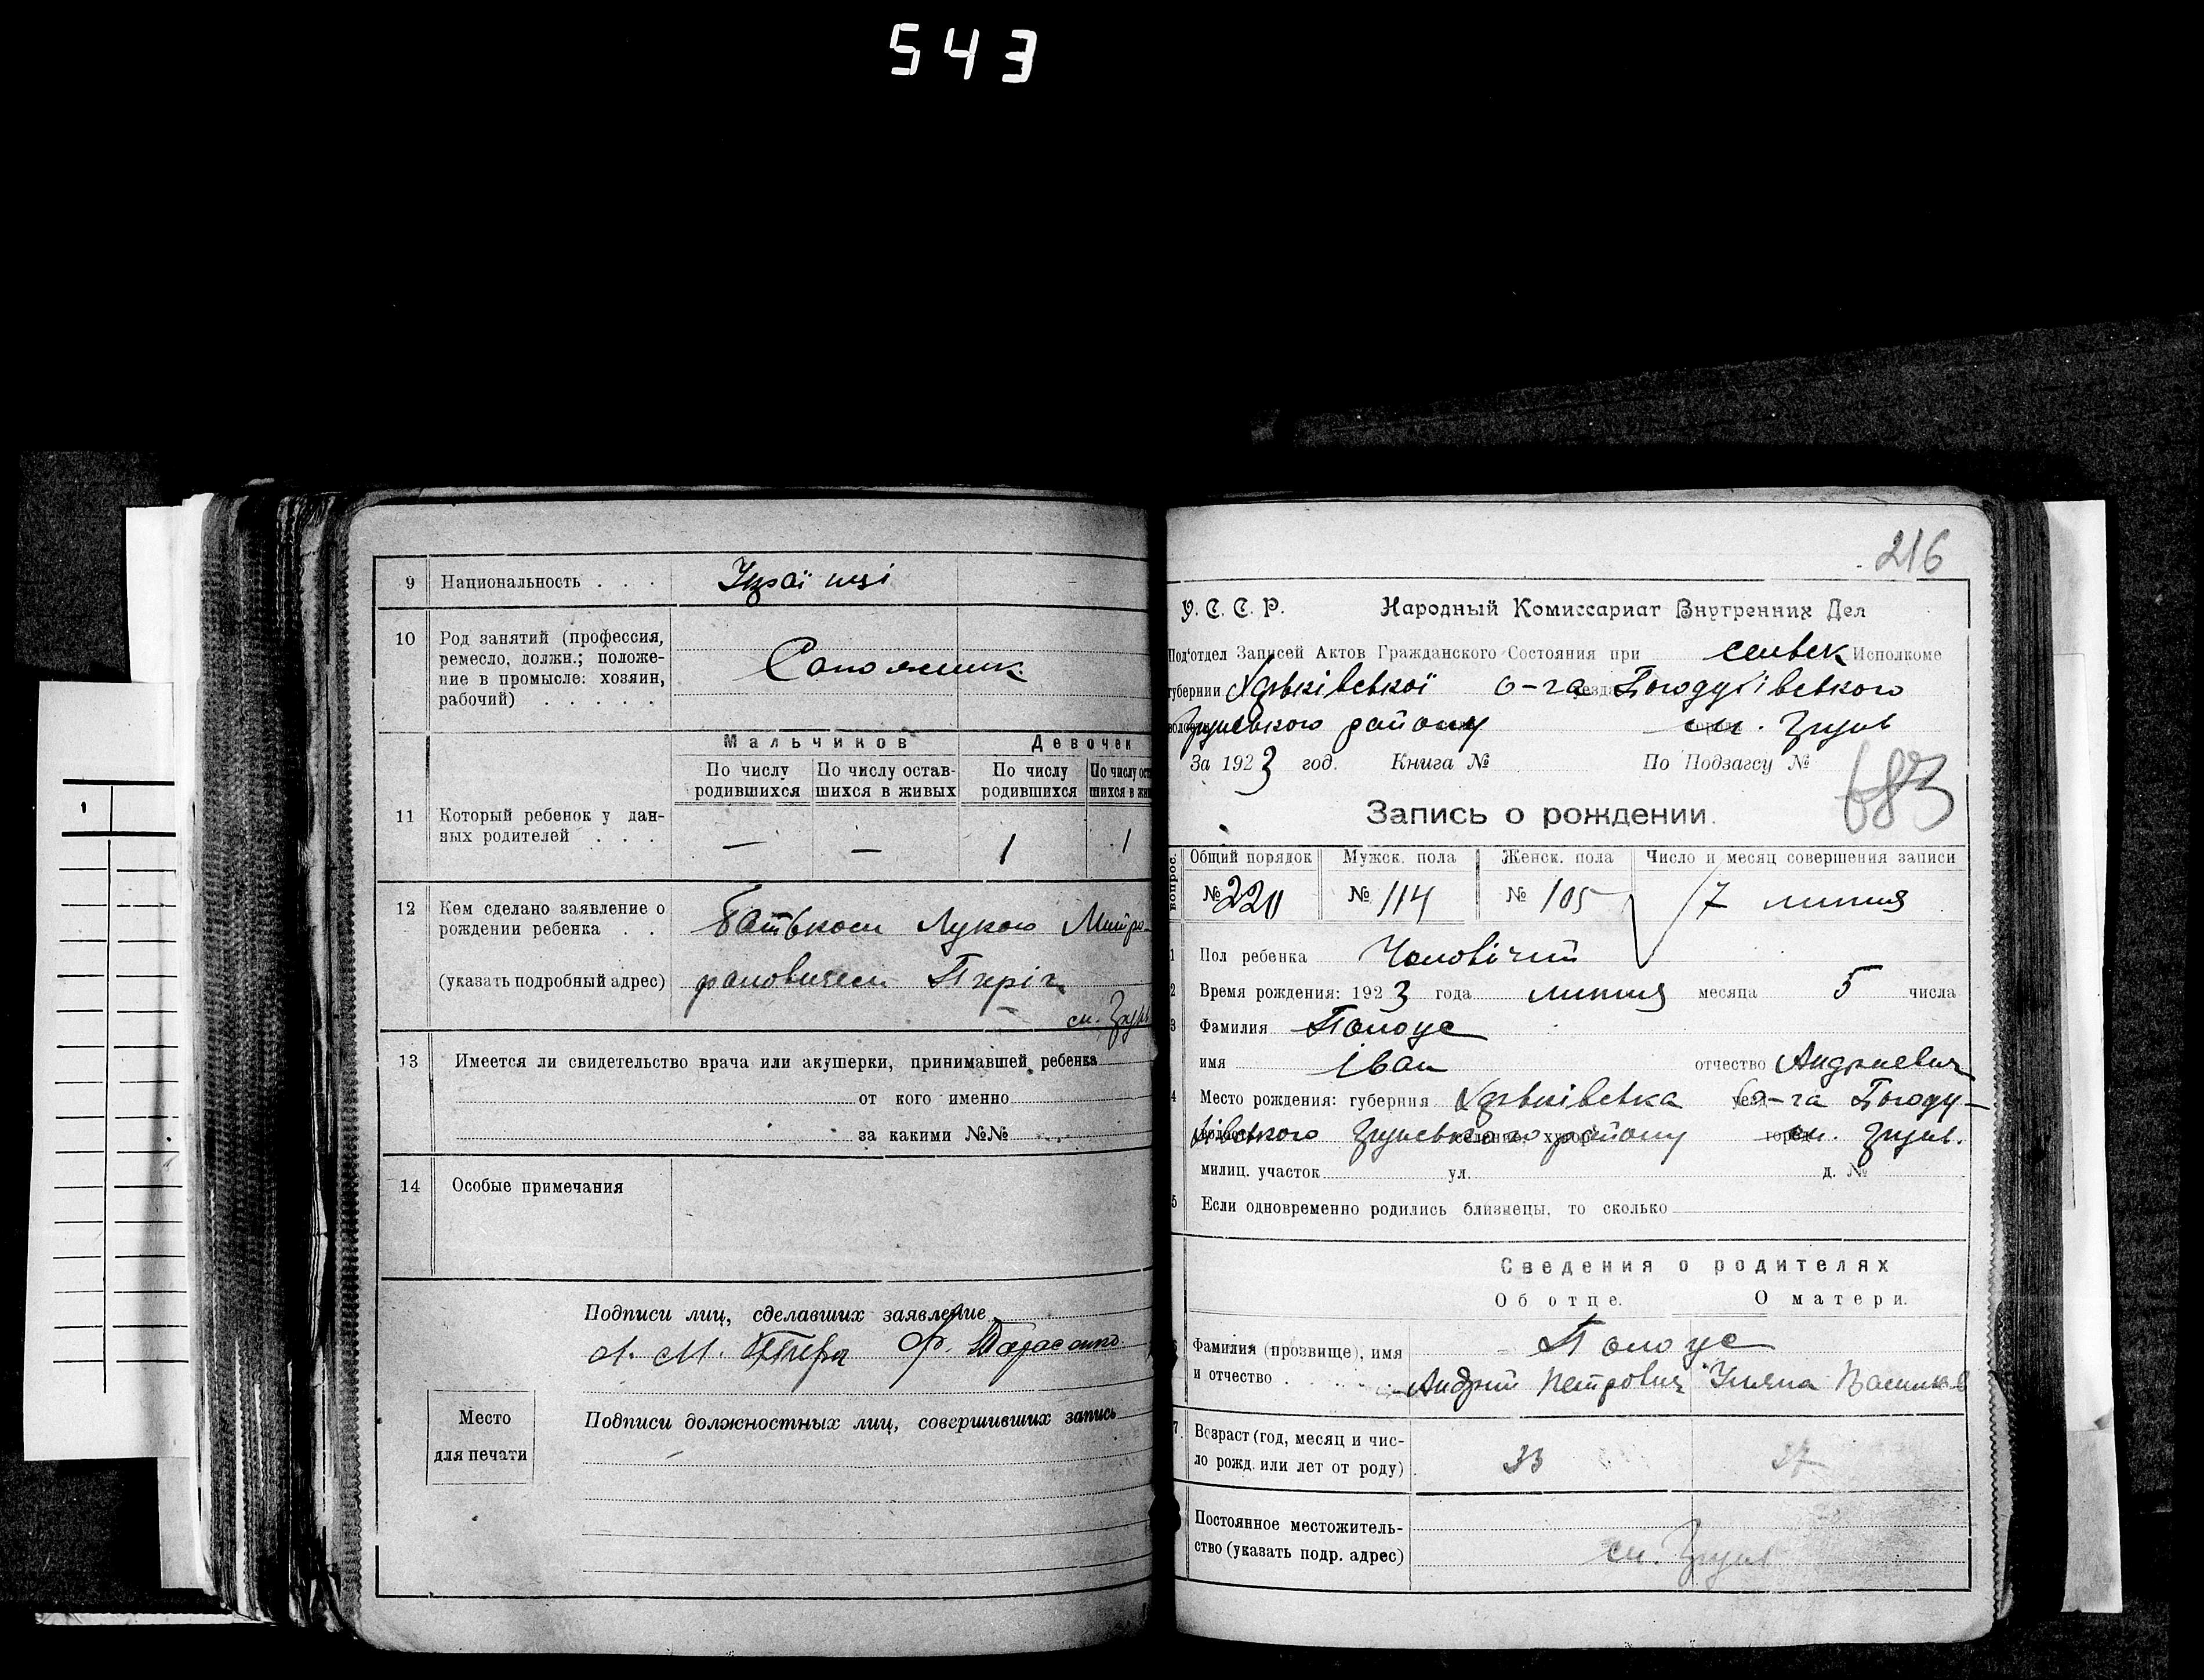 543
9 Национальность . . . Українці
10 Род занятий (профессия,
ремесло, должн.; положе-
ние в промысле: хозяин,
рабочий) . . . . .
Сапожник.
Мальчиков Девочек
По числу родившихся По числу остав-шихся в живых По числу родившихся По числу
11 Который ребенок у дан-
ных родителей . . .
— — 1 1
12 Кем сделано заявление о
рождении ребенка . . Батьком Лукою Митро-
(указать подробный адрес) фановичем
13 Имеется ли свидетельство врача или акушерки, принимавшей ребенка
от кого именно
за какими №№
14 Особые примечания
Подписи лиц, сделавших заявление
Л. М. Ф. Тарасенко
Место
для печати
Подписи должностных лиц, совершивших запись
216
У. С. С. Р. Народный Комиссариат Внутренних Дел
Под'отдел Записей Актов Гражданского Состояния при Исполкоме
губернии Харьківської о-га Богодухівського
району сл.
За 1923 год. Книга № По Подзагсу №
683
Запись о рождении.
вопрос. Общий порядок Мужск. пола Женск. пола Число и месяц совершения записи
№ 220 № 114 № 105 17 липня
1 Пол ребенка Чоловічий
2 Время рождения: 1923 года липня месяца 5 числа
3 Фамилия
имя Іван отчество Андриевич
4 Место рождения: губерния Харьківська о-га Богоду-
хівського району сл.
милиц. участок ул. д. №
5 Если одновременно родились близнецы, то сколько
Сведения о родителях
Об отце. О матери.
6 Фамилия (прозвище), имя
и отчество . . . . Андрій Петрович Уляна
7 Возраст (год, месяц и чис-
ло рожд. или лет от роду) 33 27
Постоянное местожитель-
ство (указать подр. адрес) сл.